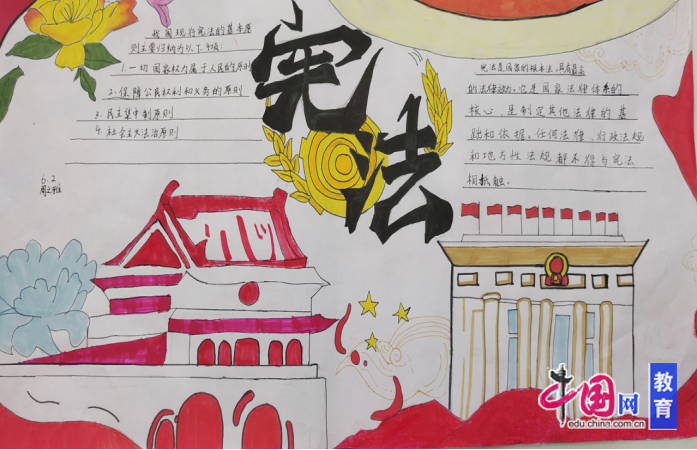 我国现行宪法的基本原
则主要归纳为以下4项:
1.一切国家权力属于人民的原则
2.保障公民权利和义务的原则
3.民主集中制原则
4.社会主义法治原则
6.2
宪法
宪法是国家的根本法,具有最高
的法律效力。它是国家法律体系的
核心,是制定其他法律的基
础和依据。任何法律、行政法规
和地方性法规都不得与宪法
相抵触。
中国网
edu.china.com.cn
教育